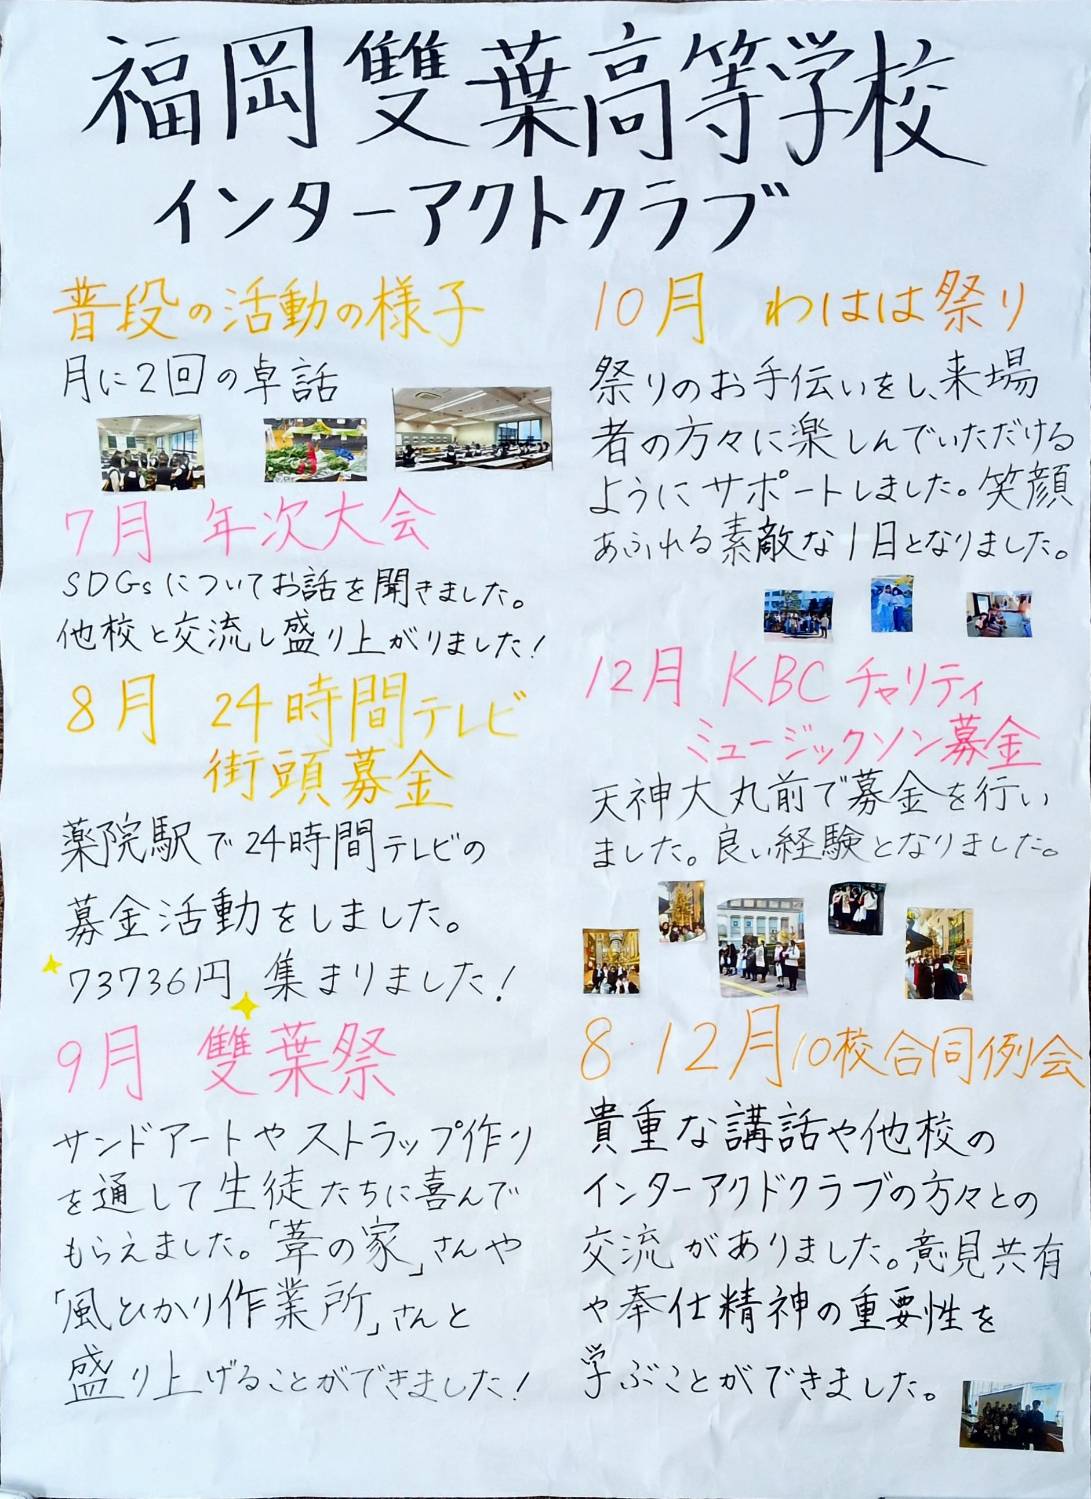 福岡雙葉高等学校
インターアクトクラブ
普段の活動の様子
月に2回の卓話
7月 年次大会
SDGsについてお話を聞きました。
他校と交流し盛り上がりました!
8月 24時間テレビ
街頭募金
薬院駅で24時間テレビの
募金活動をしました。
73736円 集まりました!
9月 雙葉祭
サンドアートやストラップ作り
を通して生徒たちに喜んで
もらえました。「葦の家」さんや
「風ひかり作業所」さんと
盛り上げることができました!
10月 わはは祭り
祭りのお手伝いをし、来場
者の方々に楽しんでいただける
ようにサポートしました。笑顔
あふれる素敵な1日となりました。
12月 KBCチャリティ
ミュージックソン募金
天神大丸前で募金を行い
ました。良い経験となりました。
8・12月10校合同例会
貴重な講話や他校の
インターアクドクラブの方々との
交流がありました。意見共有
や奉仕精神の重要性を
学ぶことができました。